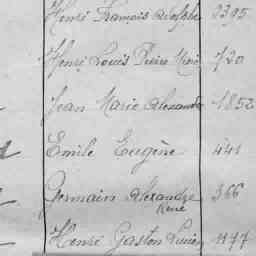 Henri François Adolphe 2395
Henri Louis Pierre Marie 720
Jean Marie Alexandre 1852
Emile Eugène 441
Germain Alexandre 366
René
Henri Gaston Lucien 1177